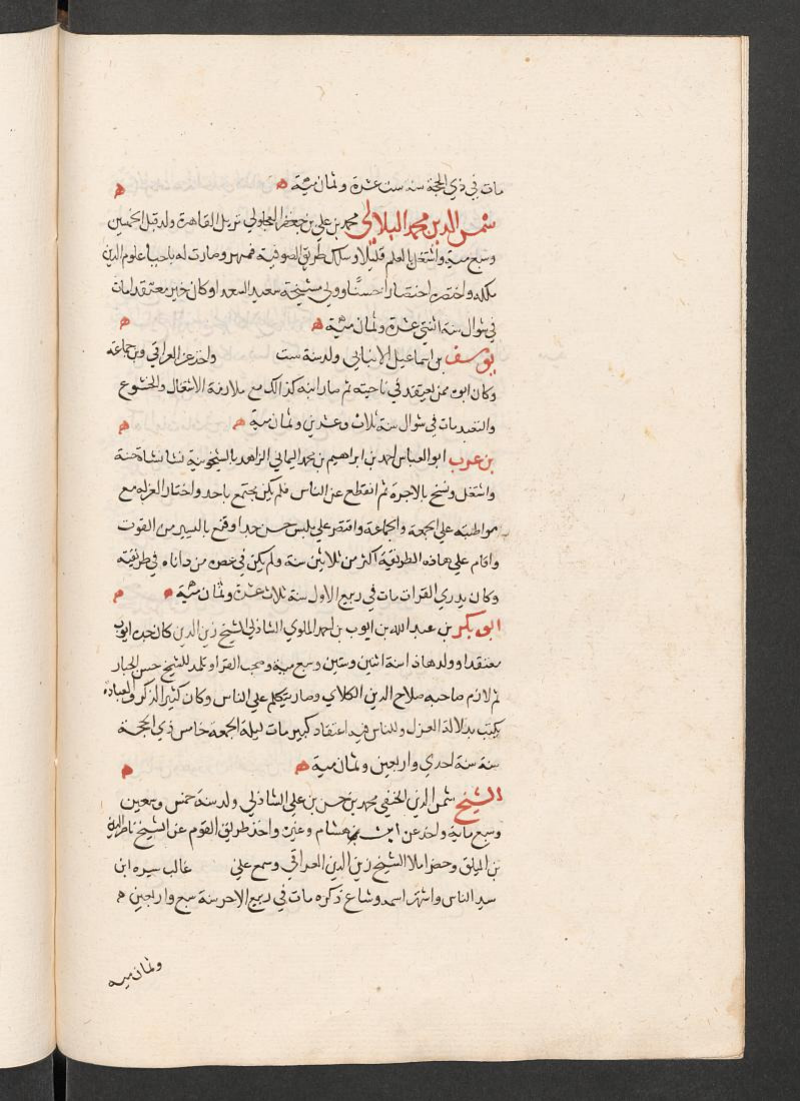 مات في ذي الحجة سنة ست عشرة وثمان مئية ه ه
شمس الدين محمد البلالي محمد بن علي بن جعفر العجلوني نزيل القاهرة ولد قبل الخمسين
وسبع مئة واشتغل بالعلم قليلا وسلك طريق الصوفية فمهر وصارت له باحيا علوم الدين
ملكه واختصره اختصارا حسنا وولي مشيخة سعيد السعدا وكان خيرا معتقدا مات
في شوال سنة اثنتي عشرة وثمان مئية ه ه
يوسف بن اسماعيل الانبابي ولد سنة ست واخذ عن العراقي وبن جماعة
وكان ابوه ممن يعتقد في ناحيته ثم صار ابنه كذالك مع ملازمة الاشتغال والخشوع
والتعبد مات في شوال سنة ثلاث وعشرين وثمان مية ه ه
بن عرب ابو العباس احمد بن ابراهيم بن محمد اليماني الزاهد بالشيخونية نشا نشاة حسنة
واشتغل ونسخ بالاجرة ثم انقطع عن الناس فلم يكن يجتمع باحد واختار العزلة مع
مواظبته علي الجمعة والجماعة واقتصر علي ملبس خشن جدا وقنع باليسير من القوت
واقام علي هاذه الطريقة اكثر من ثلاثين سنة ولم يكن في عصره من داناه في طريقته
وكان يدري القرات مات في ربيع الاول سنة ثلاث عشرة وثمان مئية ه ه
ابو بكر بن عبد الله بن ايوب بن احمد الملوي الشاذلي الشيخ زين الدين كان جده ايوب
معتقدا وولد هاذا سنة اثنين وستين وسبع مية وصحب الفقرا وتلمذ للشيخ حسن الجبار
ثم لازم صاحبه صلاح الدين الكلاي وصار يتكلم علي الناس وكان كثير الذكر والعبادة
يكتب بدلالة الغزل وللناس فيه اعتقاد كبير مات ليلة الجمعة خامس ذي الحجة
سنة سنة احدي واربعين وثمان مية ه ه
الشيخ شمس الدين الحنفي محمد بن حسن بن علي الشاذلي ولد سنة خمس وسبعين
وسبع ماية واخذ عن ابن هشام وغيره واخذ طريق القوم عن الشيخ ناصر الدين
بن الميلق وحضر املا الشيخ زين الدين العراقي وسمع علي غالب سيره ابن
سيد الناس واشتهر اسمه وشاع ذكره مات في ربيع الاخر سنة سبع واربعين ه
وثمان مية